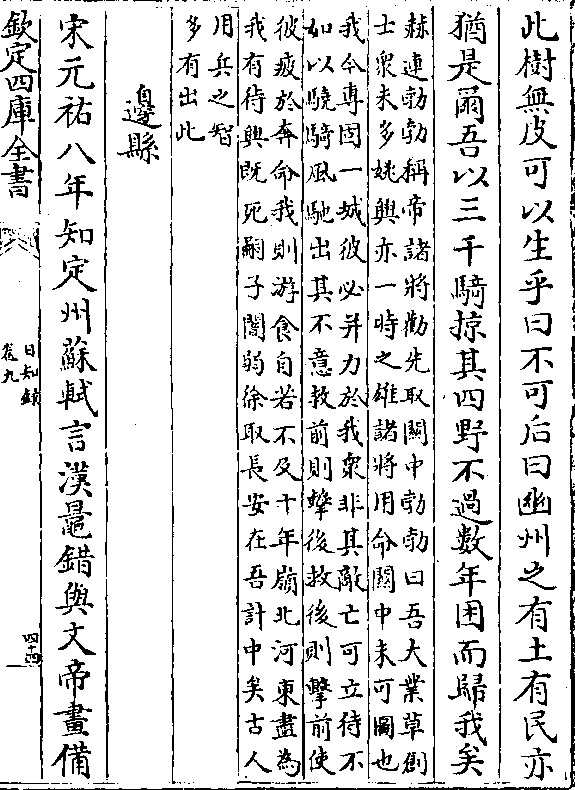 此樹無皮可以生乎曰不可后曰幽州之有土有民亦
猶是爾吾以三千騎掠其四野不過數年困而歸我矣
赫連勃勃稱帝諸將勸先取關中勃勃曰吾大業草創
士衆未多姚興亦一時之雄諸將用命關中未可圖也
我今專固一城彼必并力於我衆非其敵亡可立待不
如以驍騎風馳出其不意救前則擊後救後則擊前使
彼疲於奔命我則游食自若不及十年嶺北河東盡為
我有待興既死嗣子闇弱徐取長安在吾計中矣古人
用兵之智
多有出此
邊縣
宋元祐八年知定州蘇軾言漢鼂錯與文帝畫備
欽定四庫全書
日知録
卷九
四十四